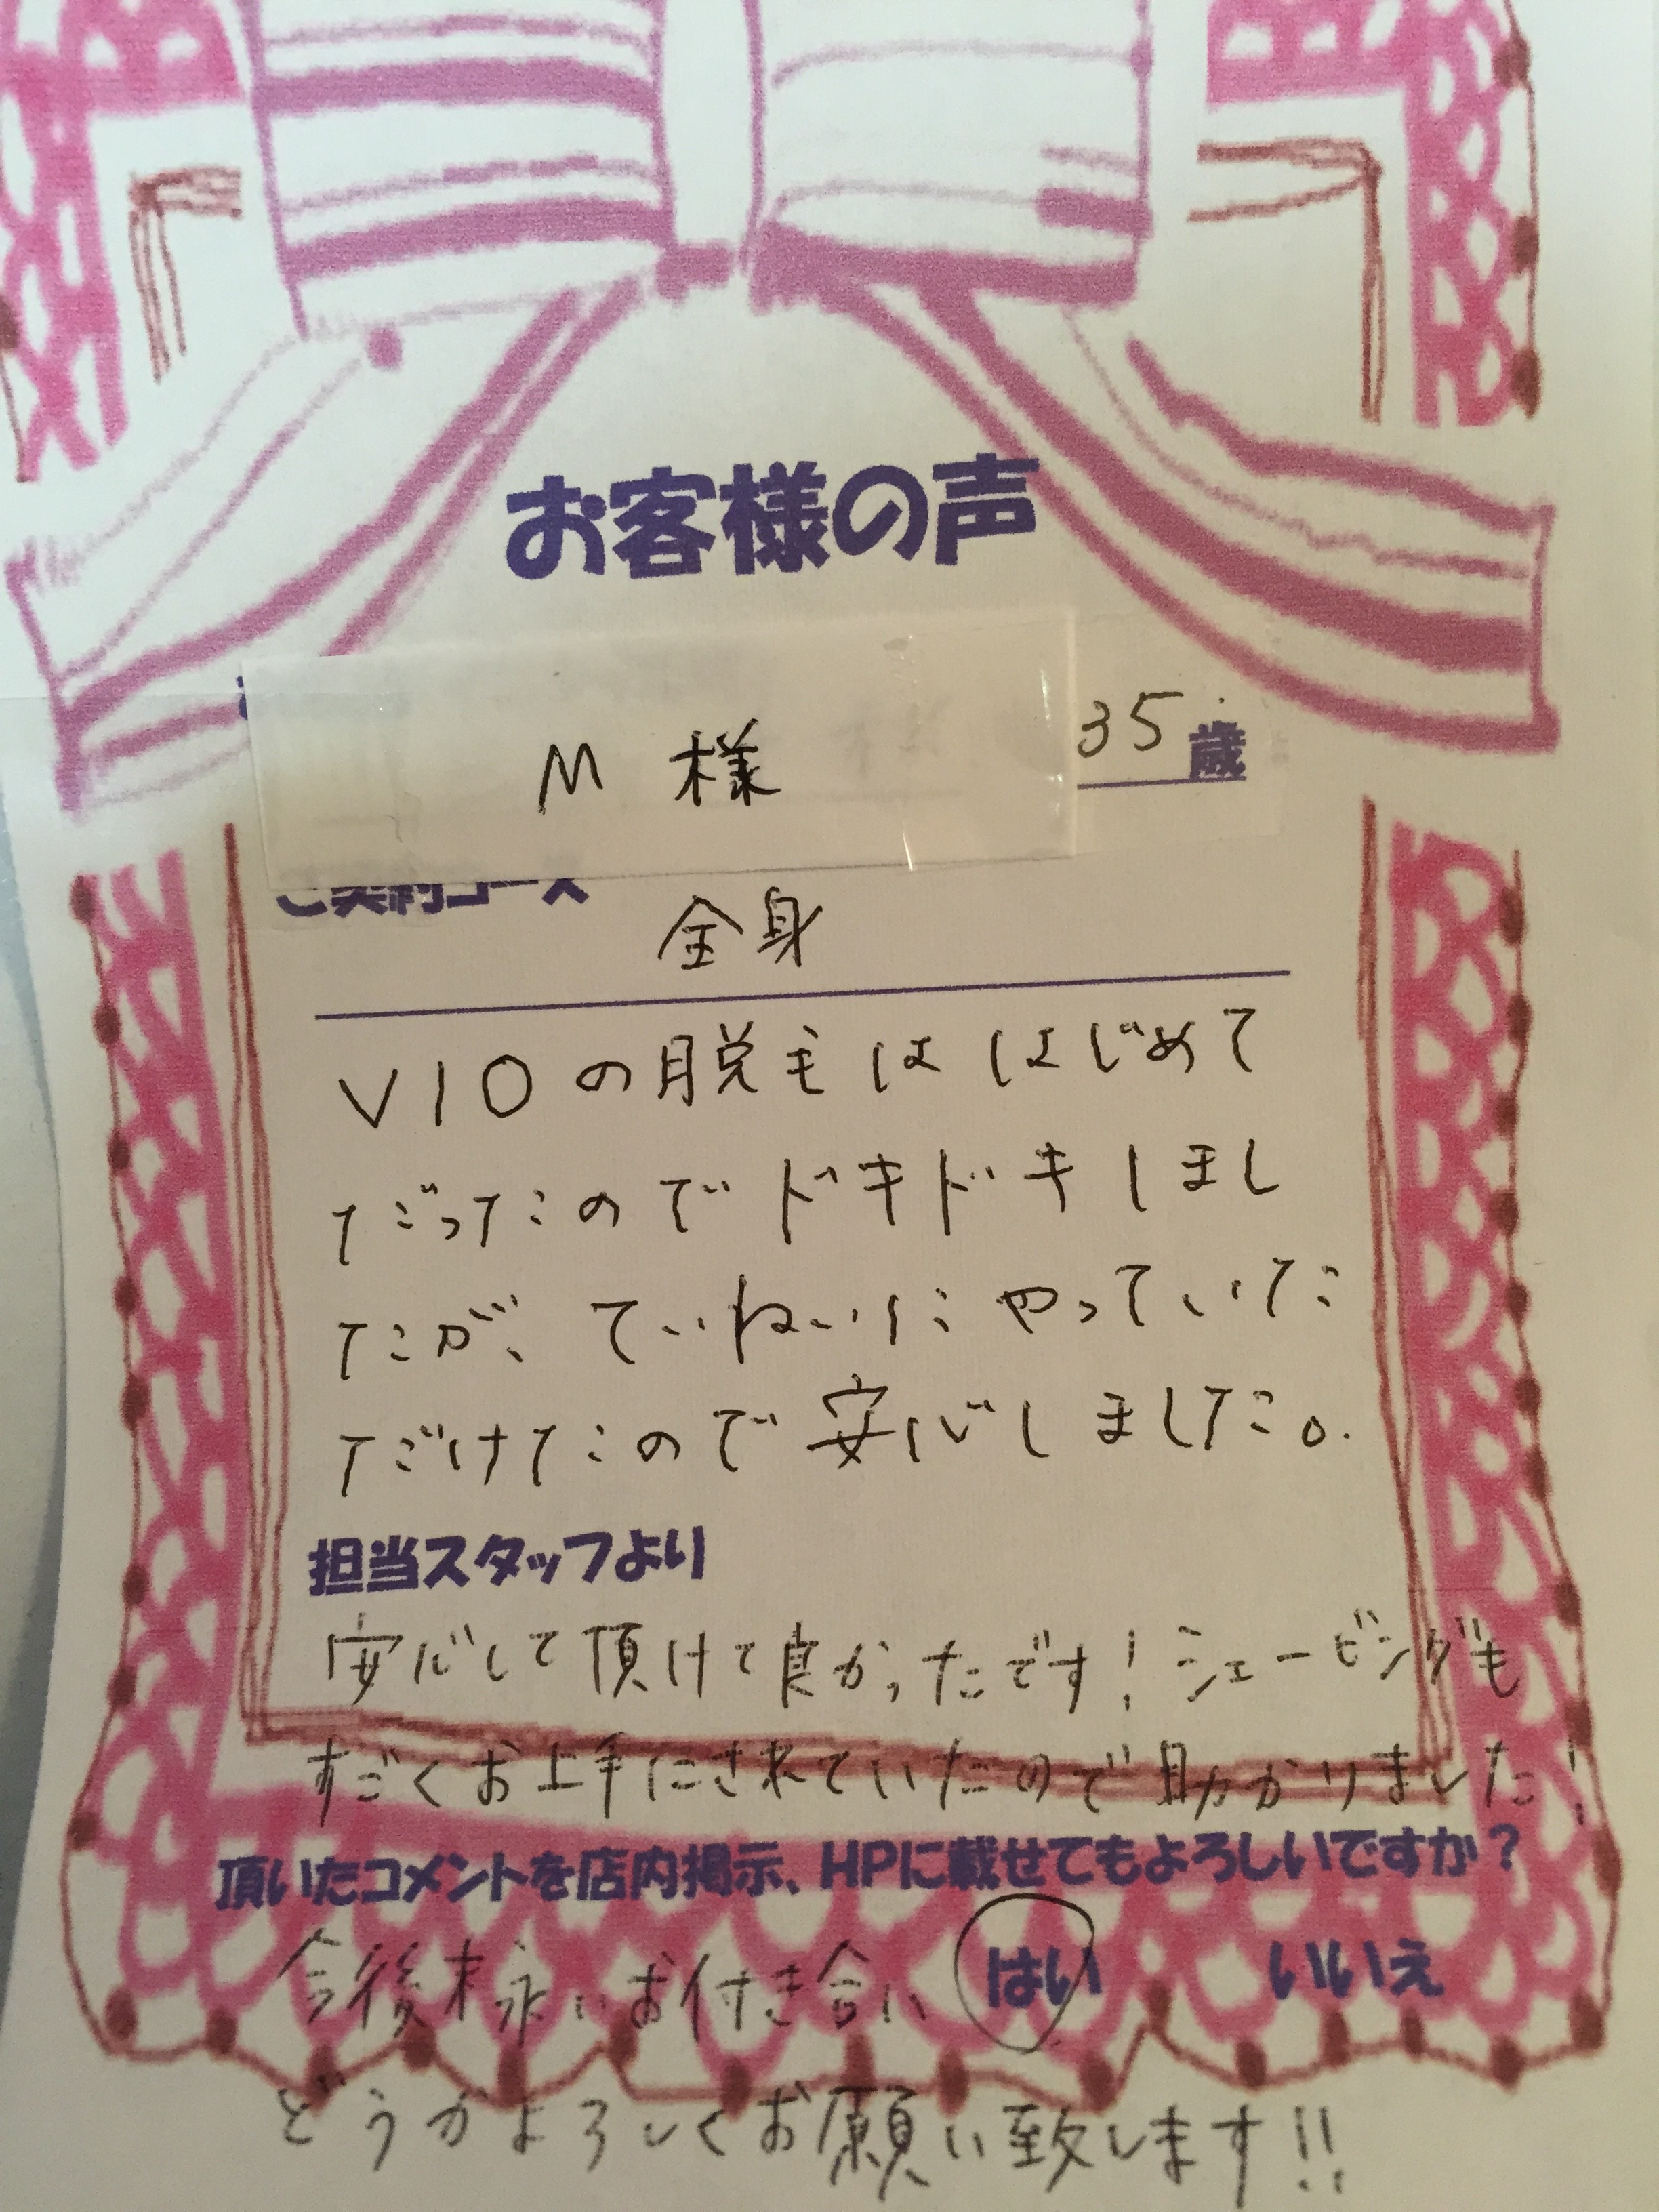 お客様の声
M 様 35歳
ご契約コース
全身
VIOの脱毛ははじめて
だったのでドキドキしまし
たが、ていねいにやっていた
だけたので安心しました。
担当スタッフより
安心して頂けて良かったです!シェービングも
すごくお上手にされていたので助かりました!
頂いたコメントを店内掲示、HPに載せてもよろしいですか?
今後末永いお付き合い はい いいえ
どうかよろしくお願い致します!!